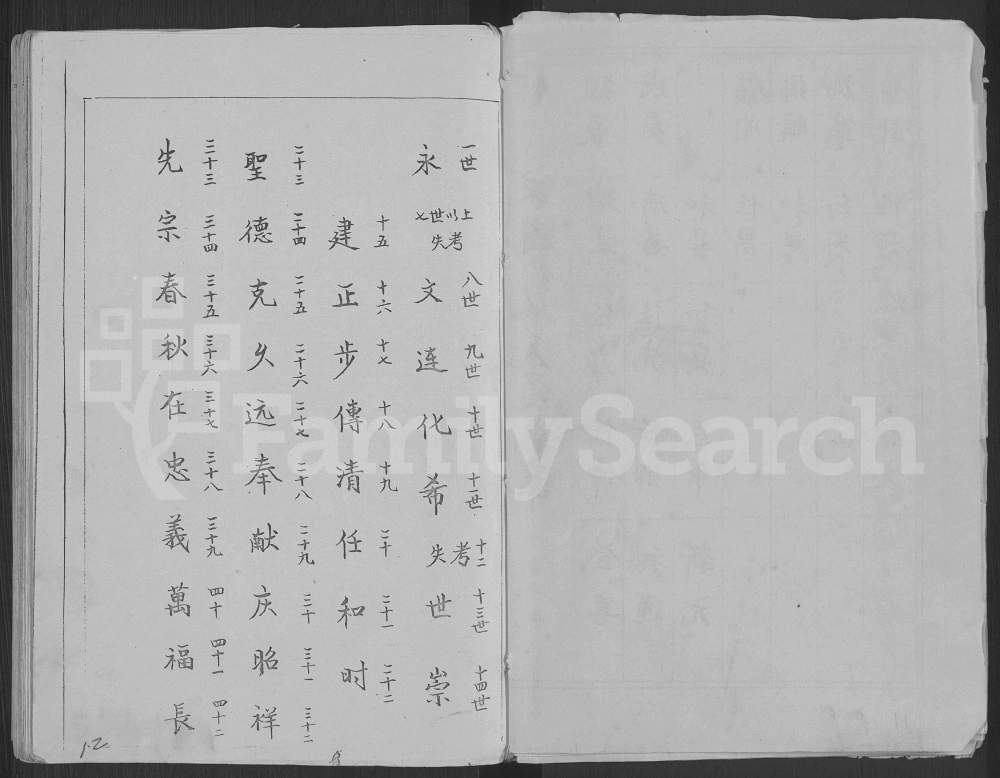 一世 七世以上失考 八世 九世 十世 十一世 十二 十三世 十四世
永 文连化希 失考 世崇
十五 十六 十七 十八 十九 二十 二十一 二十二
建正步傳清任和时
二十三 二十四 二十五 二十六 二十七 二十八 二十九 三十 三十一 三十二
聖德克久远奉献庆昭祥
三十三 三十四 三十五 三十六 三十七 三十八 三十九 四十 四十一 四十二
先宗春秋在忠義萬福長
12
FamilySearch